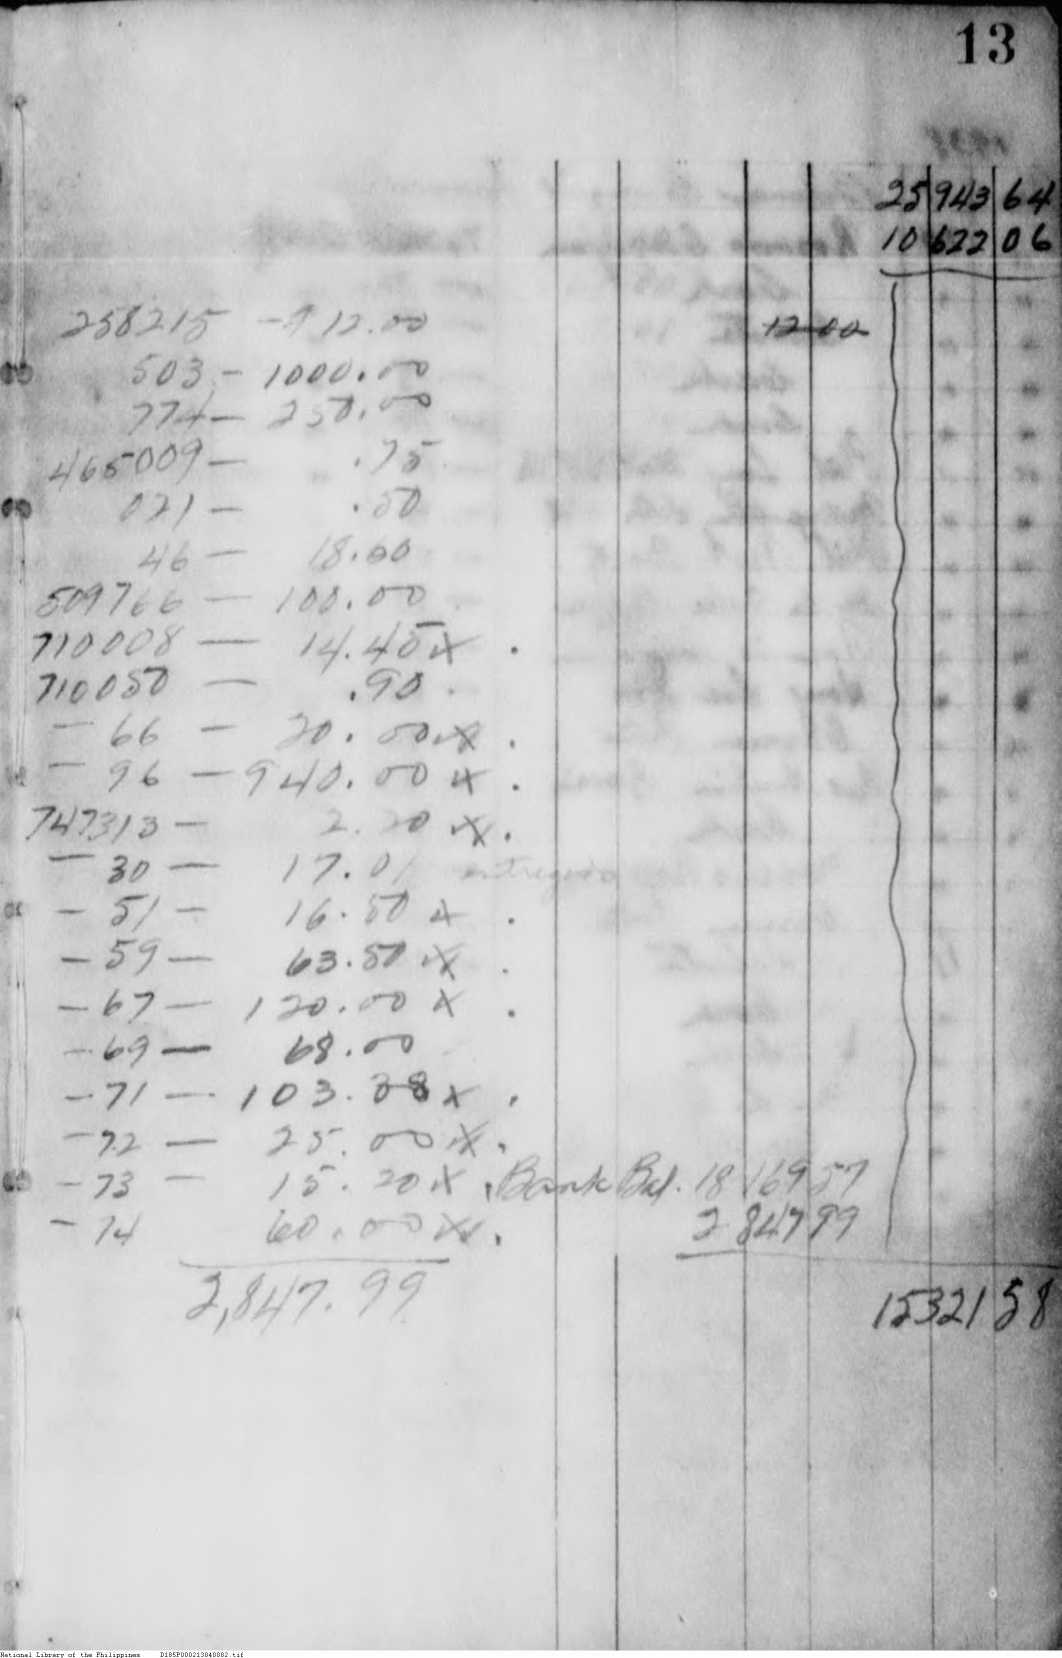 13
25 943 64
10 622 06
258215 - ₱ 12.00 12 00
503 - 1000.00
774 - 250.00
465009 - .75
021 - .50
46 - 18.60
509766 - 100.00
710008 - 14.45 x .
710050 - .90
- 66 - 20.00 x .
- 96 - 940.00 x .
747313 - 2.20 x .
- 30 - 17.01 entregado
- 51 - 16.50 x .
- 59 - 63.50 x .
- 67 - 120.00 x .
- 69 - 68.00
- 71 - 103.38 x .
- 72 - 25.00 x .
- 73 - 15.20 x . Bank Bal. 18 169 57
- 74 60.00 x . 2 847 99
2,847.99 15321 58
National Library of the Philippines D185P000213040082.tif